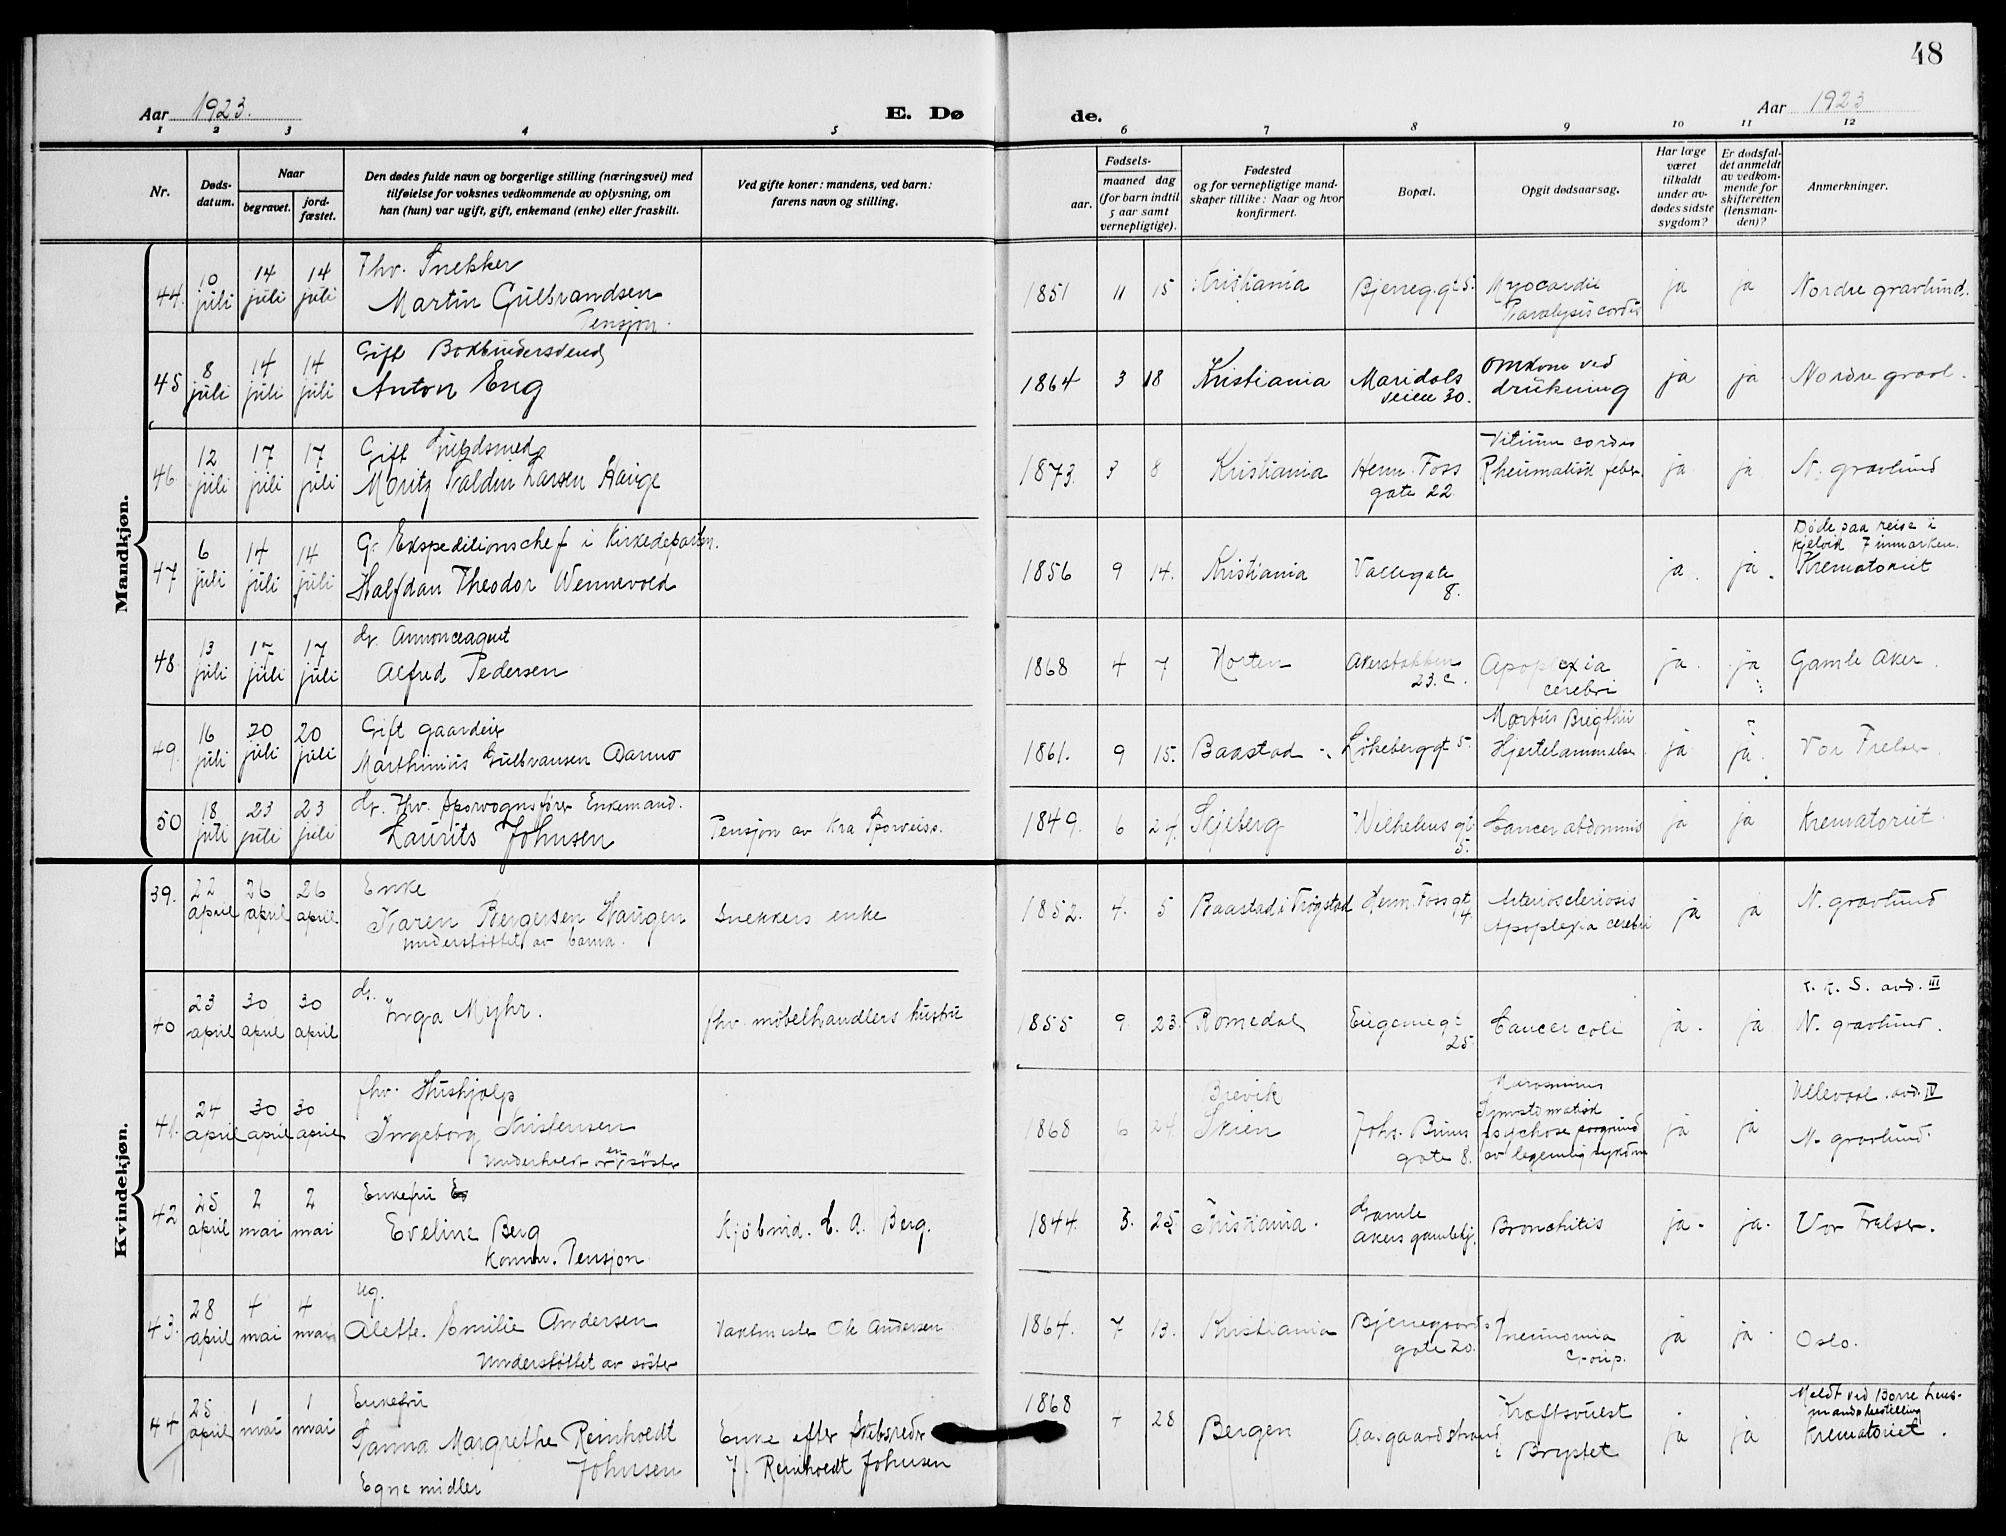 48
Aar 1923. E. Dø de. Aar 1923
1 2 3 4 5 6 7 8 9 10 11 12
Nr.
Døds-
datum.
Naar
begravet.
jord-
fæstet.
Den dødes fulde navn og borgerlige stilling (næringsvei) med
tilføielse for voksnes vedkommende av oplysning, om
han (hun) var ugift, gift, enkemand (enke) eller fraskilt.
Ved gifte koner: mandens, ved barn:
farens navn og stilling.
Fødsels-
aar.
maaned dag
(for barn indtil
5 aar samt
vernepligtige).
Fødested
og for vernepligtige mand-
skaper tillike: Naar og hvor
konfirmert.
Bopæl.
Opgit dødsaarsag.
Har læge
været
tilkaldt
under av-
dødes sidste
sygdom?
Er dødsfal-
det anmeldt
av vedkom-
mende for
skifteretten
(lensman-
den)?
Anmerkninger.
Mandkjøn.
44. 10 juli 14 juli 14 juli
Fhv. Snekker
Martin Gulbrandsen
Pensjon.
1851 11 15 Kristiania Bjerreg.gt 5. Myocardie
Paralysis cordis
ja ja Nordre gravlund.
45 8 juli 14 juli 14 juli
Gift Bokbindersvend
Anton Eng
1864 3 18 Kristiania Maridals
veien 30.
Omkom ved
drukning
ja ja Nordre gravl.
46 12 juli 17 juli 17 juli
Gift Guldsmed
Moritz Larsen Hauge
1873. 3 8 Kristiania Herm. Foss
gate 22
Vitium cordis
Rheumatisk feber.
ja ja N. gravlund
47 6 juli 14 juli 14 juli
G. Ekspeditionschef i Kirkedeparten.
Halfdan Theodor Wennevold
1856 9 14. Kristiania Vallegate
8.
ja. ja. Døde paa reise i
Kjelvik Finmarken.
Krematoriet
48. 13 juli 17 juli 17 juli
G. Annonceagent
Alfred Pedersen
1868 4 7 Horten Akersbakken
23. c.
Apoplexia
cerebri
ja. ja Gamle Aker.
49. 16 juli 20 juli 20 juli
Gift gaardeier
Marthinius Gulbransen
1861. 9 15. Baastad Løkeberggt 5. Morbus Brigthii
Hjertelammelse
ja ja Vor Frelser.
50 18 juli 23 juli 23 juli
G. Fhv. Sporvognsfører Enkemand.
Laurits Johnsen
Pensjon av Kra Sporveiss.
1849. 6 24. Skjeberg Wilhelms gt.
5.
Cancer abdominis
ja ja Krematoriet.
Kvindekjøn.
39. 22 april 26 april 26 april
Enke
Karen Bergersen Haugen
understøttet av barna.
Snekkers enke
1852. 4. 5 Baastad i Trøgstad Herm. Foss gt.
4.
Arteriosclerosis
Apoplexia cerebri
ja ja N. gravlund
40 23 april 30 april 30 april
G.
Inga Myhr.
fhv. møbelhandlers hustru
1855 9 23. Romedal Eugeniegt
25.
Cancer coli
ja. ja K. K. S. avd. III
N. gravlund.
41. 24 april 30 april 30 april
fhv. Hushjælp
Ingeborg Kristensen
Underholdt av en søster
1868 6 24. Brevik
Skien
Johs. Bruns
gate 8.
Marasmus
Symptomatisk
psychose paagrund
av legemlig sykdom
ja ja Ullevaal avd. IV
N. gravlund.
42 25 april 2 mai 2 mai
Enkefru
Eveline Berg
Komm. Pensjon.
Kjøbmd. C. A. Berg.
1844. 3. 25. Kristiania. Gamle
Akers gamlehj.
Bronchitis
ja. ja. Vor Frelser.
43. 28 april 4 mai 4 mai
Ug.
Alette Emilie Andersen
Understøttet av søster
Vaktmester Ole Andersen
1864. 7 13. Kristiania Bjerregaards
gate 20.
Pneumonia
Croup.
ja ja. Oslo.
44 25 april 1 mai 1 mai
Enkefru
Janna Margrethe Reinholdt
Johnsen
Egne midler
Enke efter Skibsreder
J. Reinholdt Johnsen
1868 4 28 Bergen Aasgaardstrand Kræftsvulst
i Brystet
ja ja Meldt ved Borre lens-
mandsbestilling
Krematoriet.